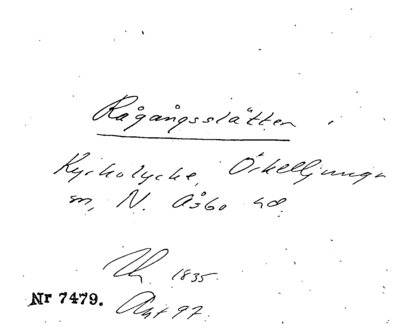 Rågångsslätten
Kyrkolycke, Örkelljunga
sn, N. Åsbo hd.
1835.
Nr 7479. Akt 97.